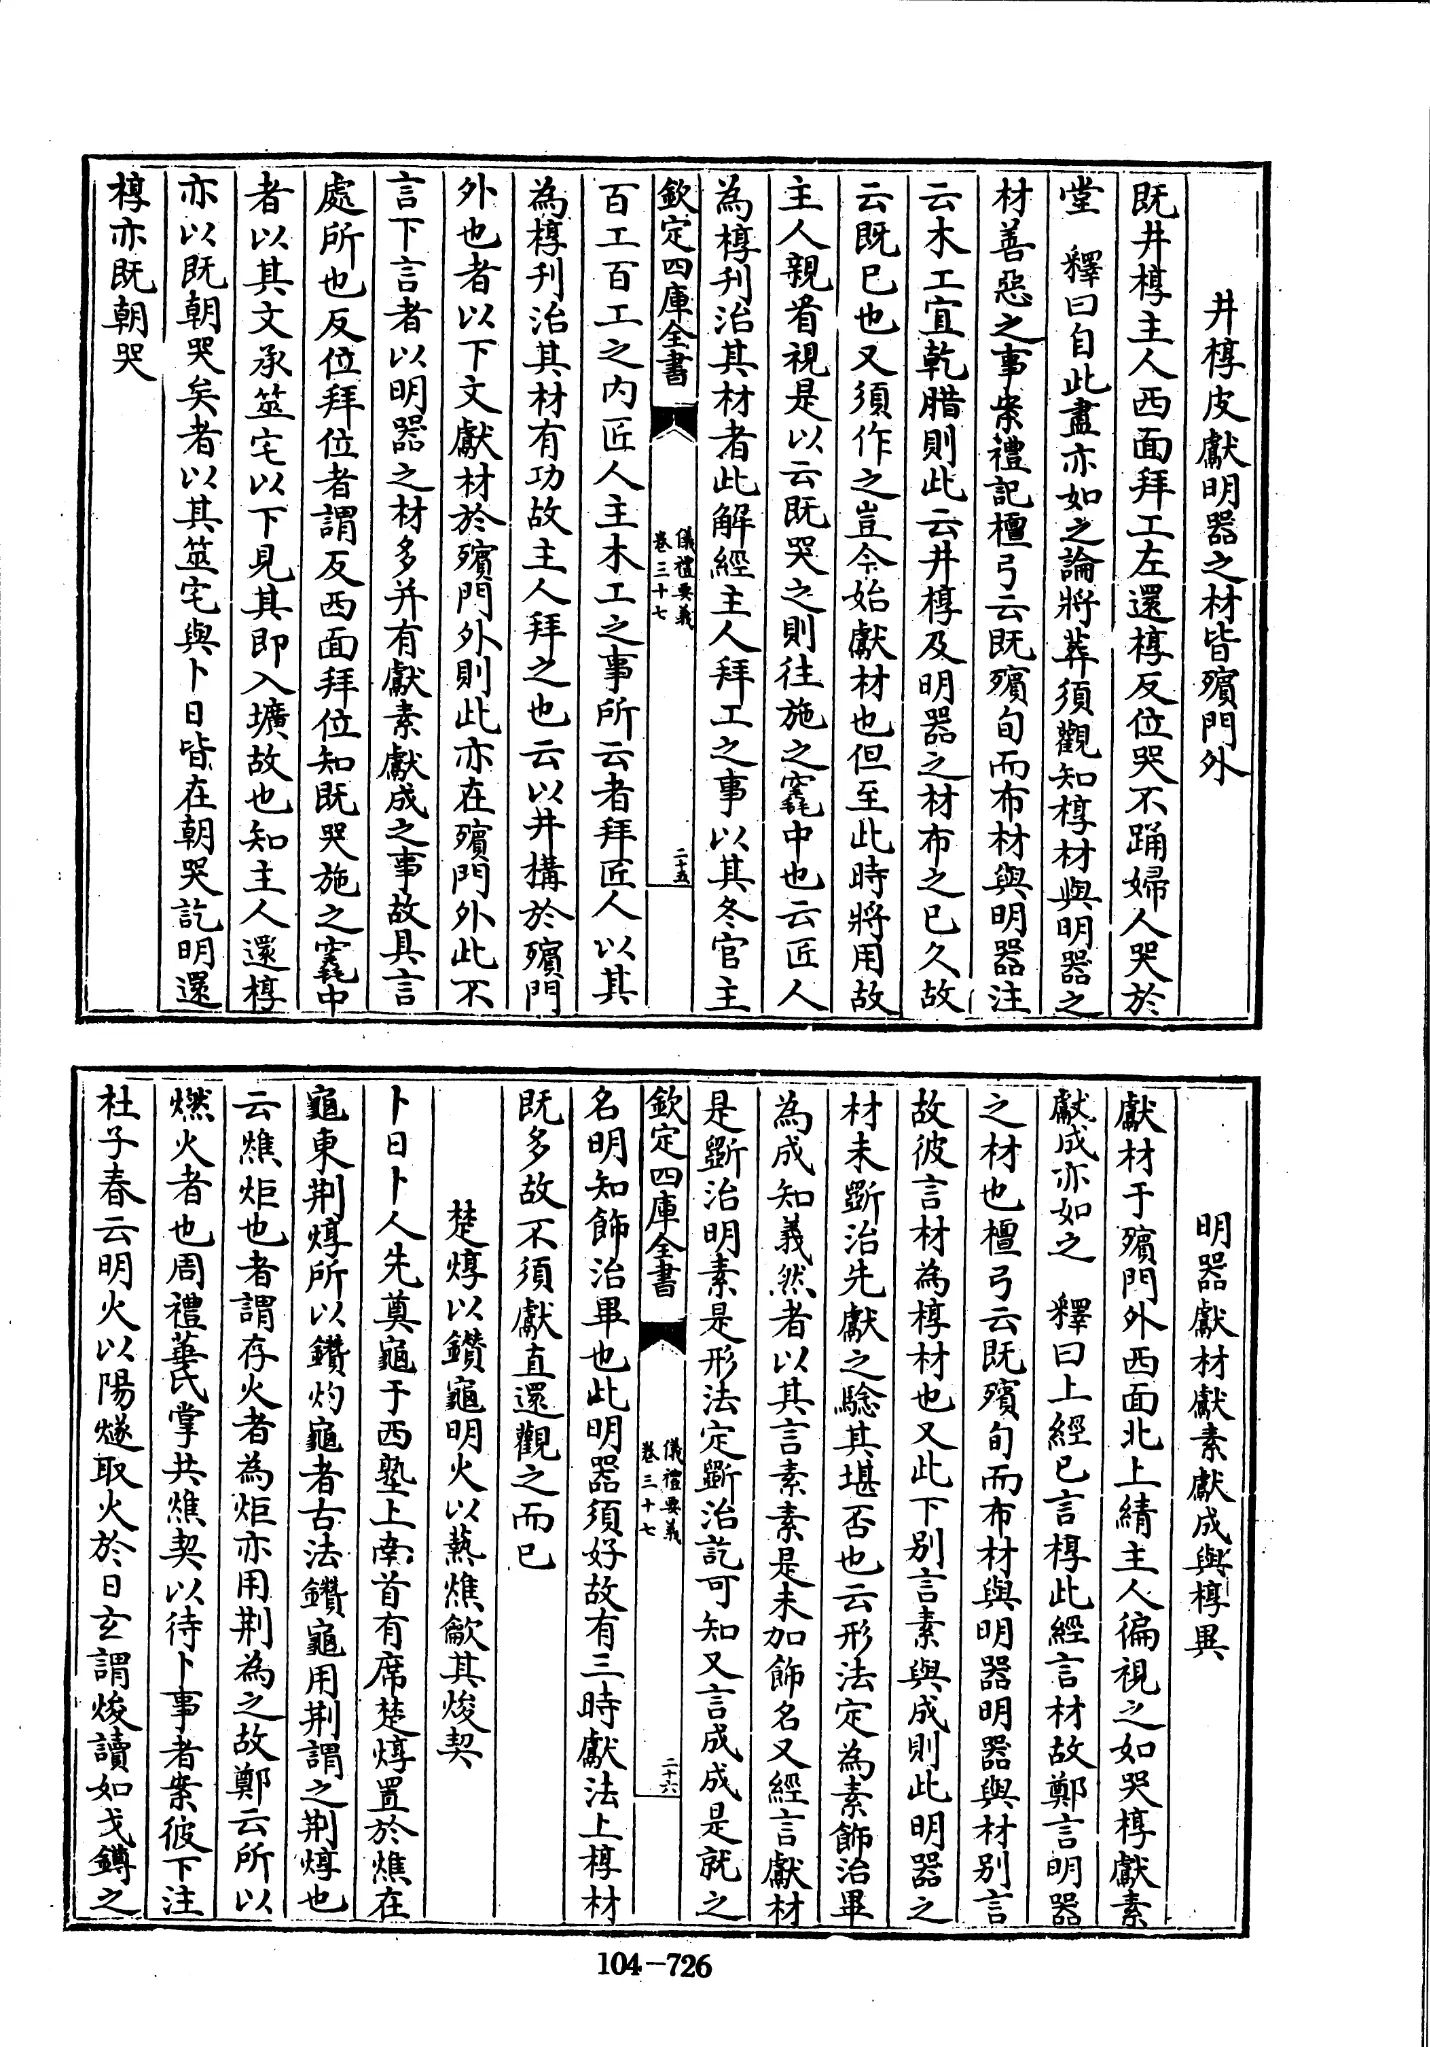 井椁皮獻明器之材皆殯門外
既井椁主人西面拜工左還椁反位哭不踊婦人哭於
堂　釋曰自此盡亦如之論將葬須觀知椁材與明器之
材善惡之事案禮記檀弓云既殯旬而布材與明器注
云木工宜乾腊則此云井椁及明器之材布之已久故
云既已也又須作之豈今始獻材也但至此時將用故
主人親看視是以云既哭之則往施之竁中也云匠人
為椁刋治其材者此解經主人拜工之事以其冬官主
欽定四庫全書
儀禮要義
卷三十七
二十五
百工百工之内匠人主木工之事所云者拜匠人以其
為椁刋治其材有功故主人拜之也云以井構於殯門
外也者以下文獻材於殯門外則此亦在殯門外此不
言下言者以明器之材多并有獻素獻成之事故具言
處所也反位拜位者謂反西面拜位知既哭施之竁中
者以其文承筮宅以下見其即入壙故也知主人還椁
亦以既朝哭矣者以其筮宅與卜日皆在朝哭訖明還
椁亦既朝哭
明器獻材獻素獻成與椁異
獻材于殯門外西面北上綪主人徧視之如哭椁獻素
獻成亦如之　釋曰上經已言椁此經言材故鄭言明器
之材也檀弓云既殯旬而布材與明器明器與材别言
故彼言材為椁材也又此下别言素與成則此明器之
材未斲治先獻之驗其堪否也云形法定為素飾治畢
為成知義然者以其言素素是未加飾名又經言獻材
是斲治明素是形法定斲治訖可知又言成成是就之
欽定四庫全書
儀禮要義
卷三十七
二十六
名明知飾治畢也此明器須好故有三時獻法上椁材
既多故不須獻直還觀之而已
楚焞以鑽龜明火以爇燋龡其焌契
卜日卜人先奠龜于西塾上南首有席楚焞置於燋在
龜東荆焞所以鑽灼龜者古法鑽龜用荆謂之荆焞也
云燋炬也者謂存火者為炬亦用荆為之故鄭云所以
燃火者也周禮菙氏掌共燋契以待卜事者案彼下注
杜子春云明火以陽燧取火於日玄謂焌讀如戈鐏之
104-726